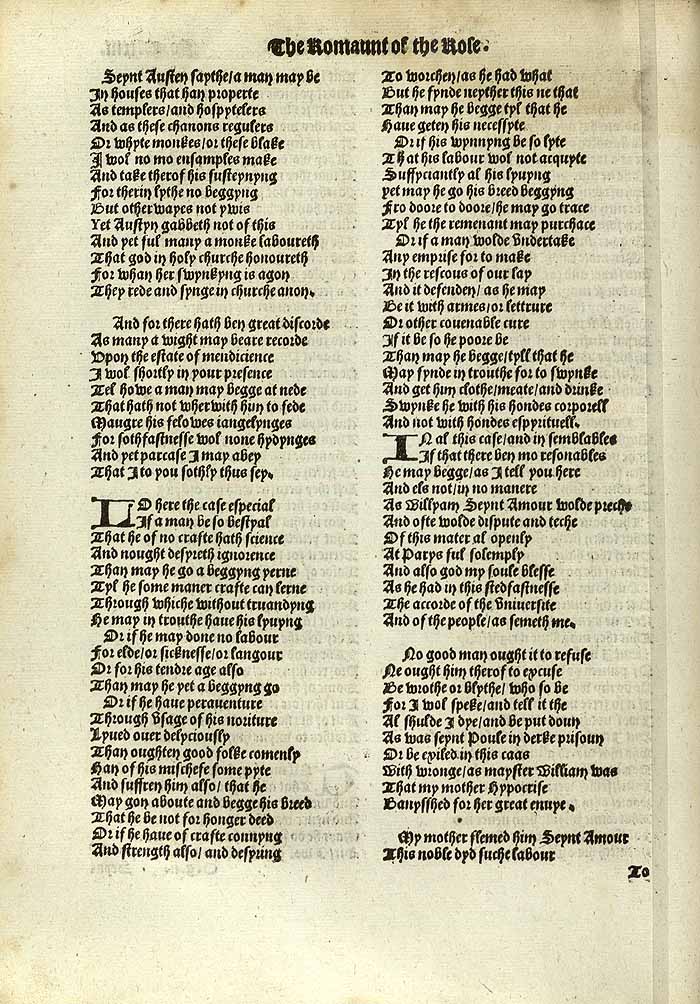 The Romaunt of the Rose.
Seynt Austen saythe/a man may be
In houses that han properte
As templers/and hospytelers
And as these chanons regulers
Or whyte monkes/or these blake
I wol no mo ensamples make
And take therof his susteynyng
For therin lythe no beggyng
But otherwayes not ywis
Yet Austyn gabbeth not of this
And yet ful many a monke laboureth
That god in holy churche honoureth
For whan her swynkyng is agon
They rede and synge in churche anon.
And for there hath ben great discorde
As many a wight may beare recorde
Upon the estate of mendicience
I wol shortly in your presence
Tel howe a man may begge at nede
That hath not wherwith hym to fede
Maugre his felowes iangelynges
For sothfastnesse wol none hydynges
And yet parcase I may abey
That I to you sothly thus sey.
LO here the case especial
If a man be so bestyal
That he of no crafte hath science
And nought desyreth ignorence
Than may he go a beggyng yerne
Tyl he some maner crafte can lerne
Through whiche without truandyng
He may in trouthe haue his lyuyng
Or if he may done no labour
For elde/or sicknesse/or langour
Or for his tendre age also
Than may he yet a beggyng go
Or if he haue perauenture
Through vsage of his noriture
Lyued ouer delyciously
Than oughten good folke comenly
Han of his mischefe some pyte
And suffren him also/that he
May gon aboute and begge his breed
That he be not for honger deed
Or if he haue of crafte connyng
And strength also/and desyring
To worchen/as he had what
But he fynde neyther this ne that
Than may he begge tyl that he
Haue geten his necessyte
Or if his wynnyng be so lyte
That his labour wol not acquyte
Suffyciantly al his lyuyng
yet may he go his breed beggyng
Fro doore to doore/he may go trace
Tyl he the remenant may purchace
Or if a man wolde vndertake
Any emprise for to make
In the rescous of our lay
And it defenden/as he may
Be it with armes/or lettrure
Or other couenable cure
If it be so he poore be
Than may he begge/tyll that he
May fynde in trouthe for to swynke
And get him clothe/meate/and drinke
Swynke he with his hondes corporell
And not with hondes espyrituell.
IN al this case/and in semblables
If that there ben mo resonables
He may begge/as I tell you here
And els not/in no manere
As Willyam Seynt Amour wolde preche
And ofte wolde dispute and teche
Of this mater al openly
At Parys ful solemply
And also god my soule blesse
As he had in this stedfastnesse
The accorde of the Vniuersite
And of the people/as semeth me.
No good man ought it to refuse
Ne ought him therof to excuse
Be wrothe or blythe/who so be
For I wol speke/and tell it the
Al shulde I dye/and be put doun
As was seynt Poule in derke prisoun
Or be exiled in this caas
With wronge/as mayster William was
That my mother Hypocrise
Banysshed for her great enuye.
My mother flemed him Seynt Amour
This noble dyd suche labour
To